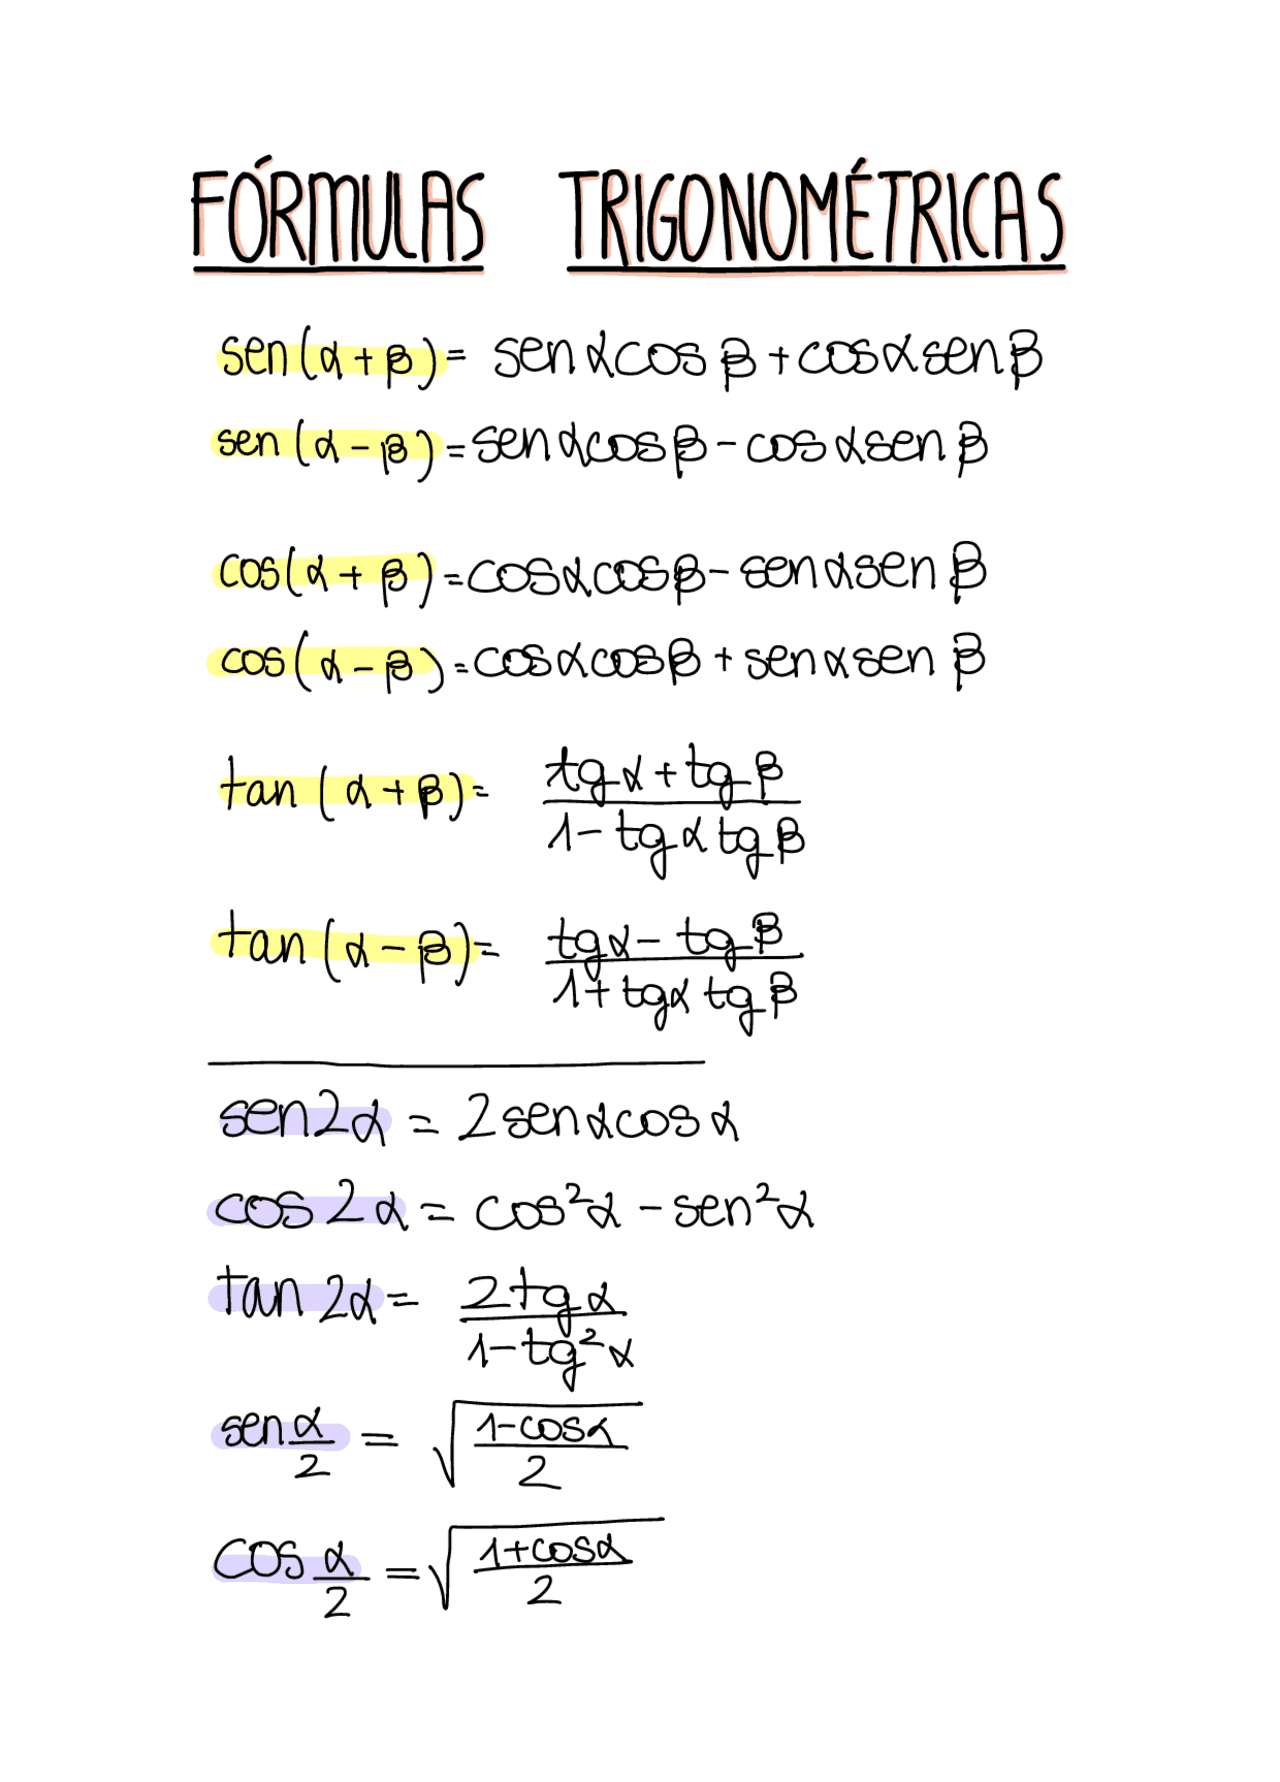 FÓRMULAS TRIGONOMÉTRICAS
sen(α+β)= senαcosβ+cosαsenβ
sen(α-β)=senαcosβ-cosαsenβ
cos(α+β)=cosαcosβ-senαsenβ
cos(α-β)=cosαcosβ+senαsenβ
tan(α+β)= \frac{tgα+tgβ}{1-tgαtgβ}
tan(α-β)= \frac{tgα-tgβ}{1+tgαtgβ}
sen2α = 2senαcosα
cos2α = cos²α-sen²α
tan2α = \frac{2tgα}{1-tg²α}
sen\frac{α}{2} = \sqrt{\frac{1-cosα}{2}}
cos\frac{α}{2} = \sqrt{\frac{1+cosα}{2}}